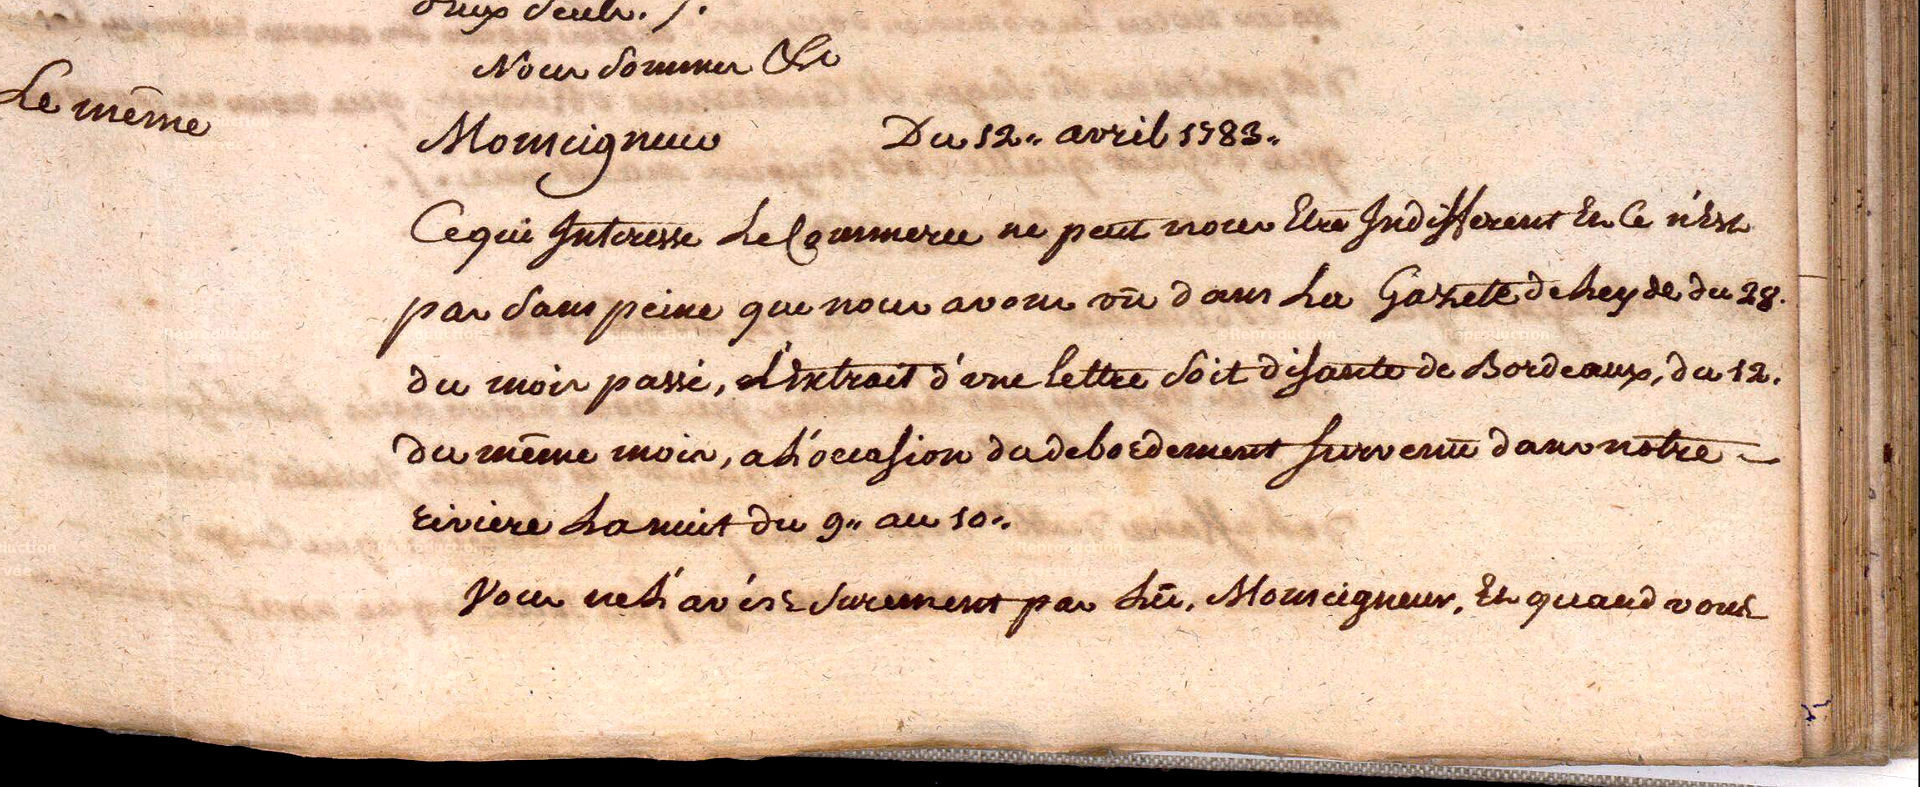 deux seuls. /.
Nous sommes &c
Le même
Monseigneur Du 12.. avril 1783..
Ce qui Interesse Le Commerce ne peut nous Etre Indifferent Et Ce n'Est
pas sans peine que nous avons vû dans La Gazete de Leyde du 28.
du mois passé, L'Extrait d'une lettre soit disante de Bordeaux, du 12.
du même mois, a L'occasion du debordement survenu dans notre
riviere La nuit du 9.. au 10..
Vous ne L'avés surement pas Lû, Monseigneur, Et quand vous